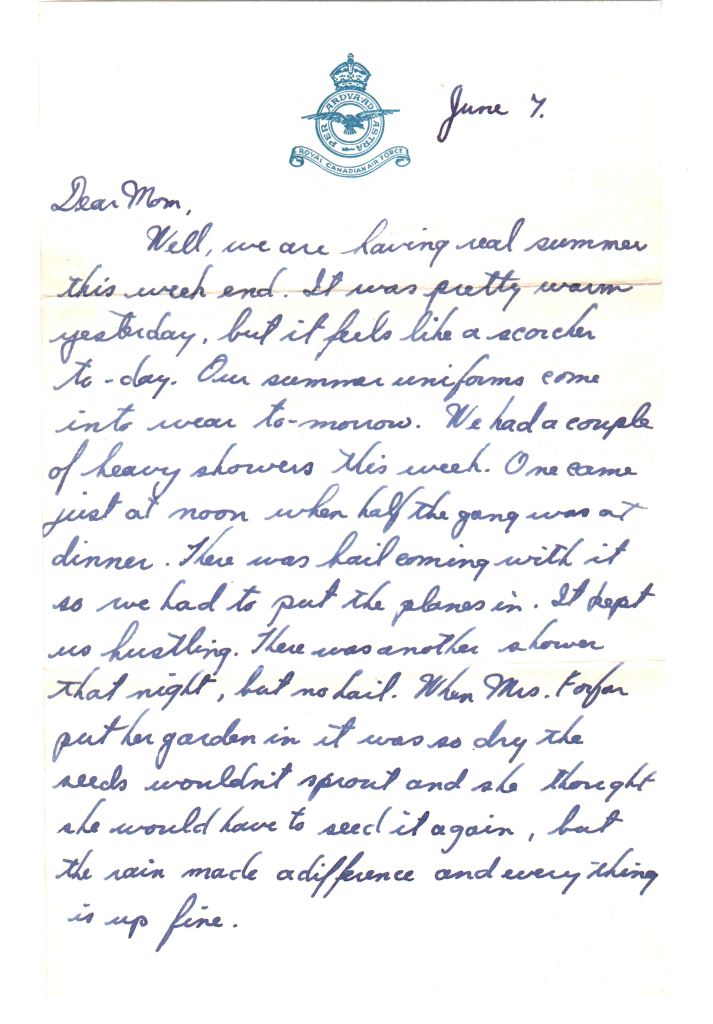 PER ARDVA AD ASTRA
ROYAL CANADIAN AIR FORCE
June 7.
Dear Mom,
Well, we are having real summer
this week end. It was pretty warm
yesterday, but it feels like a scorcher
to-day. Our summer uniforms come
into wear to-morrow. We had a couple
of heavy showers this week. One came
just at noon when half the gang was at
dinner. There was hail coming with it
so we had to put the planes in. It kept
us hustling. There was another shower
that night, but no hail. When Mrs. Forfar
put her garden in it was so dry the
seeds wouldn't sprout and she thought
she would have to seed it again, but
the rain made a difference and everything
is up fine.